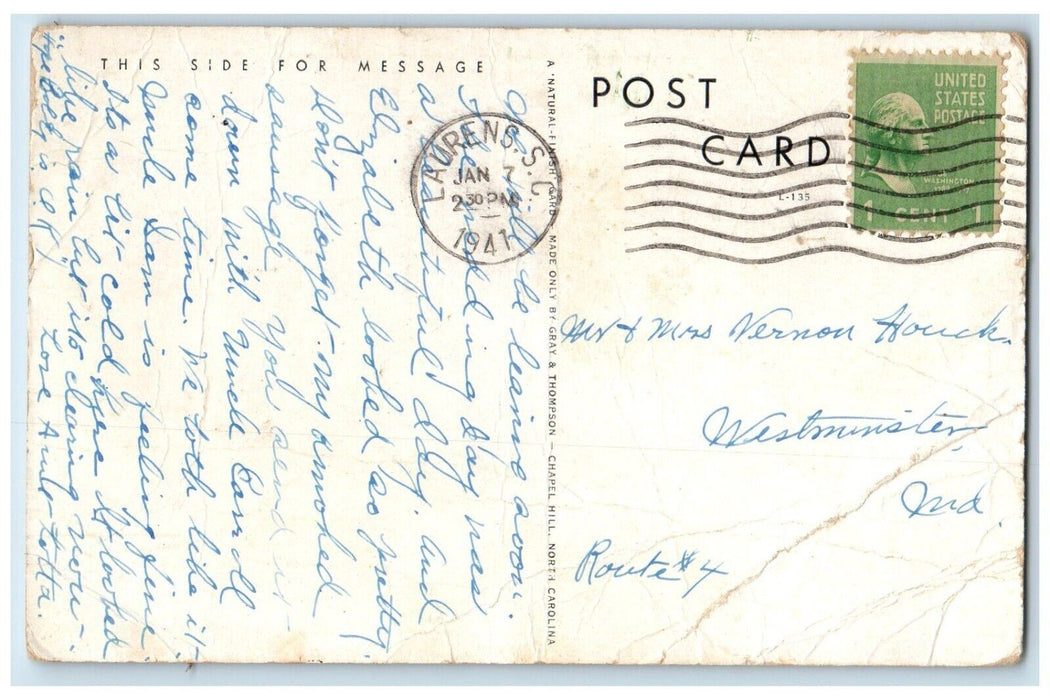 THIS SIDE FOR MESSAGE
be leaving soon.
The Wedding Day was
a beautiful day. and
Elizabeth looked so pretty.
Don't forget my smoked
sausage. You send it
down with Uncle Carroll
come time. We both like it.
Uncle Sam is feeling fine.
Its a bit cold here. It looked
like rain but its clearing now -
is O.K. Love Aunt Lotta.
LAURENS, S.C.
JAN 7
2 30 PM
1941
A "NATURAL-FINISH" CARD MADE ONLY BY GRAY & THOMPSON — CHAPEL HILL, NORTH CAROLINA
POST CARD
L-135
UNITED
STATES
POSTAGE
WASHINGTON
1 CENT 1
Mr & Mrs Vernon Houck.
Westminster
Md.
Route #4